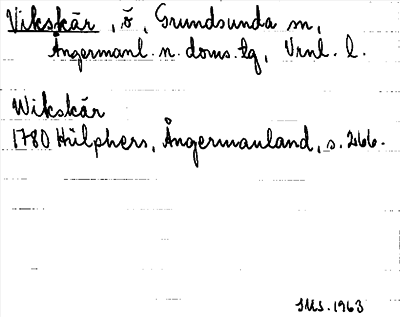 Vikskär, ö, Grundsunda sn,
Ångermanl. n. doms. tg, Vrnl. l.
Wikskär
1780 Hülphers, Ångermanland, s. 266.
SMS. 1963